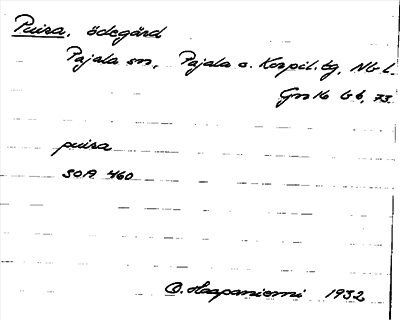 Puisa, ödegård
Pajala sn, Pajala o. Korpil. tg, Nb l.
Gm 16 Gb, 73
puisa
SOA 460
O. Haapaniemi 1932